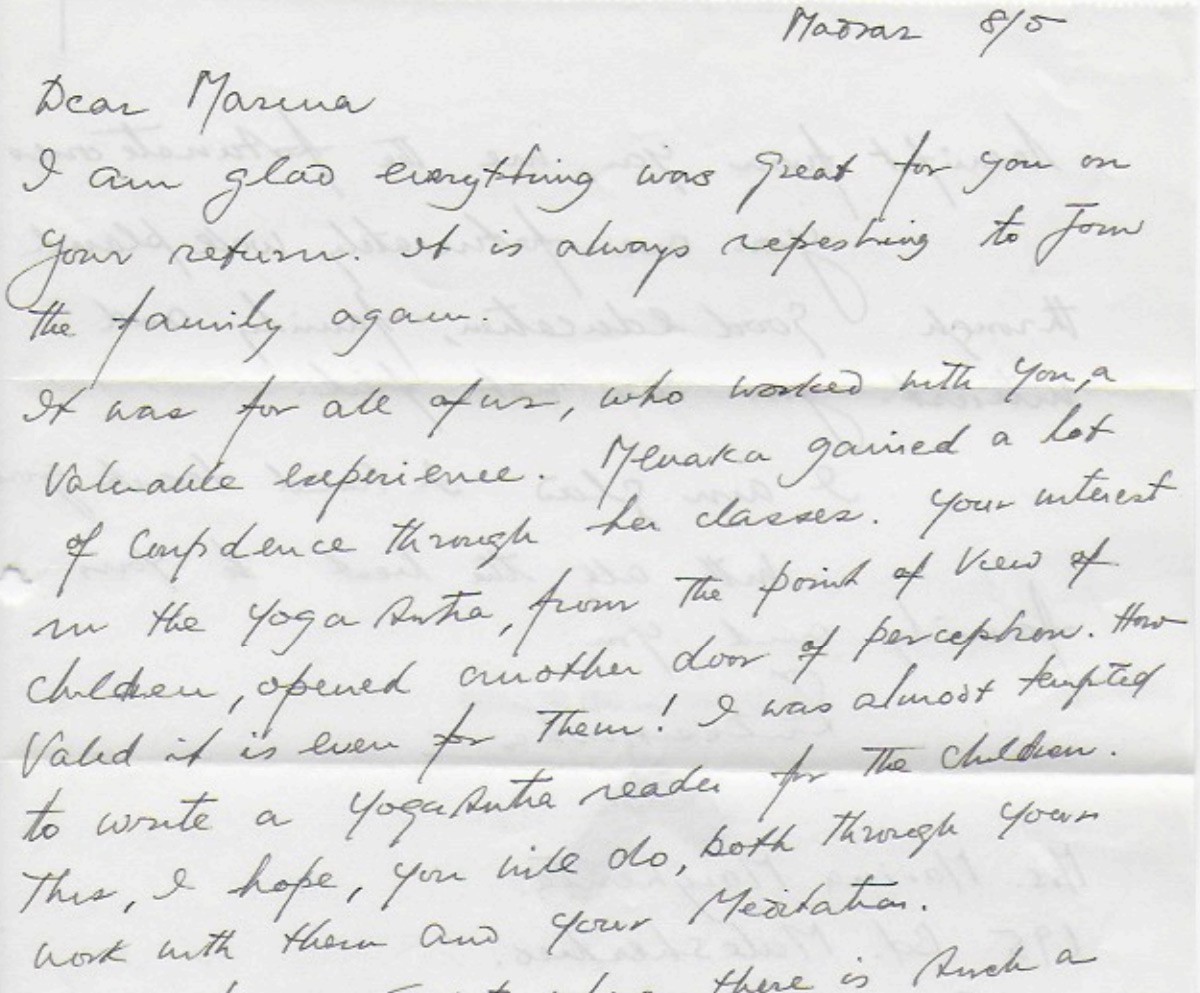 Madras 8/5
Dear Marina
I am glad everything was great for you on
your return. It is always refreshing to Join
the family again.
It was for all of us, who worked with you, a
Valuable experience. Menaka gained a lot
of Confidence through her classes. Your interest
in the Yoga Sutra, from the point of View of
children, opened another door of perception. How
Valid it is even for Them! I was almost tempted
to write a Yoga Sutra reader for the children.
This, I hope, you will do, both through your
work with them and your Meditation.
there is such a